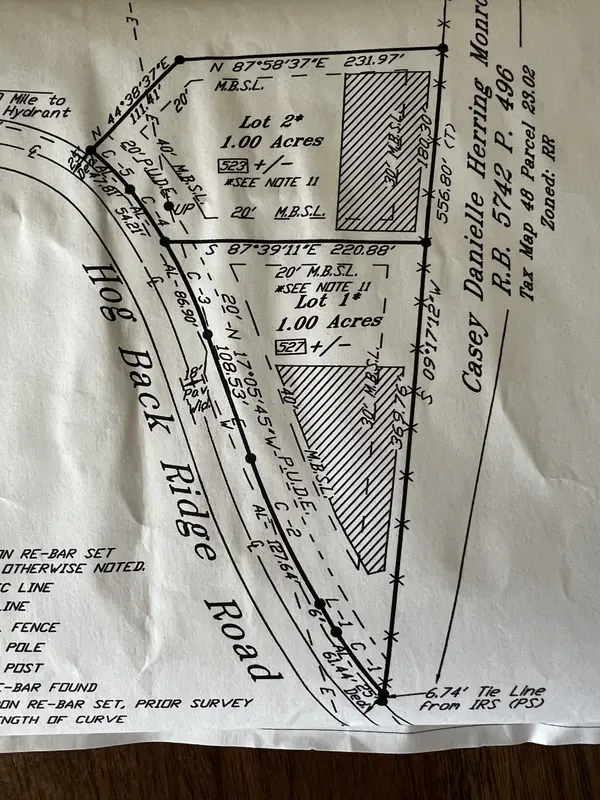 Mile to
Hydrant
N 44°38'37"E
111.41'
N 87°58'37"E 231.97'
M.B.S.L.
20'
Lot 2*
1.00 Acres
523 +/-
*SEE NOTE 11
20' M.B.S.L.
40' M.B.S.L.
20' P.U.D.E.
UP
30' M.B.S.L.
180.30'
556.80' (T)
C-5
AL-
54.21'
C-4
S 87°39'11"E 220.88'
20' M.B.S.L.
*SEE NOTE 11
Lot 1*
1.00 Acres
527 +/-
AL-86.90'
C-3
N 17°05'45"W
108.53'
20' P.U.D.E.
40' M.B.S.L.
30' M.B.S.L.
369.76'
S 09°17'12"W
18'
Pav
Wid.
C-2
AL-127.64'
L-1
C-1
AL-
61.44'
6.74' Tie Line
from IRS (PS)
Hog Back Ridge Road
Casey Danielle Herring Monro
R.B. 5742 P. 496
Tax Map 48 Parcel 23.02
Zoned: RR
ON RE-BAR SET
OTHERWISE NOTED.
IC LINE
LINE
FENCE
POLE
POST
E-BAR FOUND
ON RE-BAR SET, PRIOR SURVEY
ENGTH OF CURVE